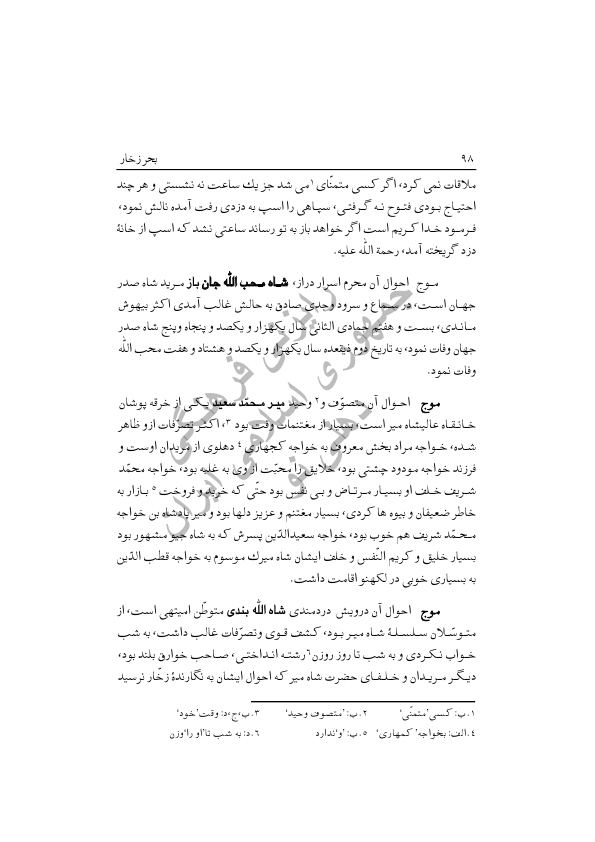 ۹۸ بحر زخار
ملاقات نمی کرد، اگر کسی متمنّای ۱می شد جز یك ساعت نه نشستی و هر چند
احتیاج بودی فتوح نه گرفتی، سپاهی را اسپ به دزدی رفت آمده نالش نمود،
فرمود خدا کریم است اگر خواهد باز به تو رساند ساعتی نشد که اسپ از خانۀ
دزد گریخته آمد، رحمة الله علیه.
موج احوال آن محرم اسرار دراز، شاه محب الله جان باز مرید شاه صدر
جهان است، در سماع و سرود وجدی صادق به حالش غالب آمدی اکثر بیهوش
ماندی، بست و هفتم جمادی الثانی سال یکهزار و یکصد و پنجاه وپنج شاه صدر
جهان وفات نمود، به تاریخ دوم ذیقعده سال یکهزار و یکصد و هشتاد و هفت محب الله
وفات نمود.
موج احوال آن متصوّف و۲ وحید میر محمّد سعید یکی از خرقه پوشان
خانقاه عالیشاه میر است، بسیار از مغتنمات وقت بود ۳، اکثر تصرّفات ازو ظاهر
شده، خواجه مراد بخش معروف به خواجه کجهاری ۴ دهلوی از مریدان اوست و
فرزند خواجه مودود چشتی بود، خلایق را محبّت از وی به غلبه بود، خواجه محمّد
شریف خلف او بسیار مرتاض و بی نفس بود حتّی که خرید و فروخت ۵ بازار به
خاطر ضعیفان و بیوه ها کردی، بسیار مغتنم و عزیز دلها بود و میر پادشاه بن خواجه
محمّد شریف هم خوب بود، خواجه سعیدالدّین پسرش که به شاه جیو مشهور بود
بسیار خلیق و کریم النّفس و خلف ایشان شاه میرك موسوم به خواجه قطب الدّین
به بسیاری خوبی در لکهنو اقامت داشت.
موج احوال آن درویش دردمندی شاه الله بندی متوطّن امیتهی است، از
متوسّلان سلسلۀ شاه میر بود، کشف قوی وتصرّفات غالب داشت، به شب
خواب نکردی و به شب تا روز روزن۶رشته انداختی، صاحب خوارق بلند بود،
دیگر مریدان و خلفای حضرت شاه میر که احوال ایشان به نگارندۀ زخّار نرسید
۱.ب: کسی'متمنّی' ۲.ب: 'متصوف وحید' ۳.ب،ج،د: وقت'خود'
۴.الف: بخواجه' کمهاری' ۵.ب: 'و'ندارد ۶.د: به شب تا'او را'وزن
رایزنی فرهنگی
جمهوری اسلامی ایران
دهلی نو